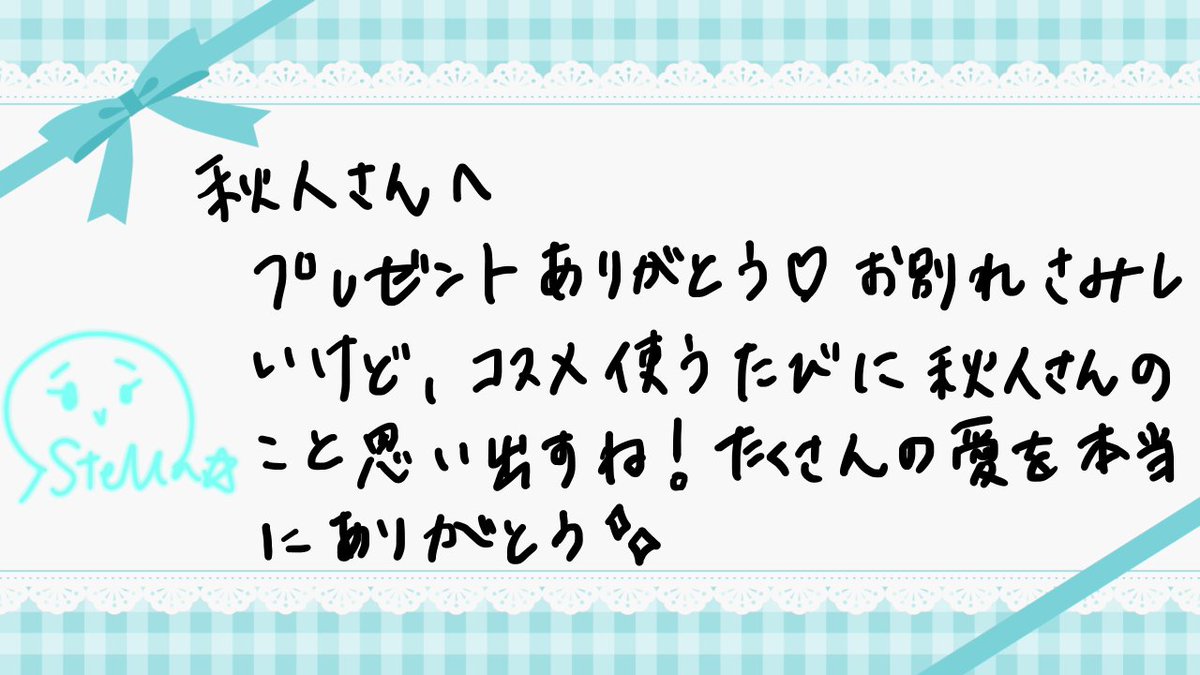 秋人さんへ
プレゼントありがとう♡お別れさみし
いけど、コスメ使うたびに秋人さんの
こと思い出すね!たくさんの愛を本当
にありがとう✨
Stella☆